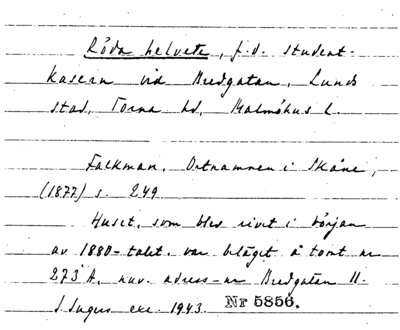 Röda helvete, f.d. student-
kasern vid Bredgatan, Lunds
stad, Torna hd, Malmöhus l.
Falkman, Ortnamnen i Skåne,
(1877) s. 249.
Huset, som blev rivet i början
av 1880-talet, var beläget å tomt nr
273 A, nuv. adress-nr Bredgatan 11.
exc. 1943. Nr 5856.